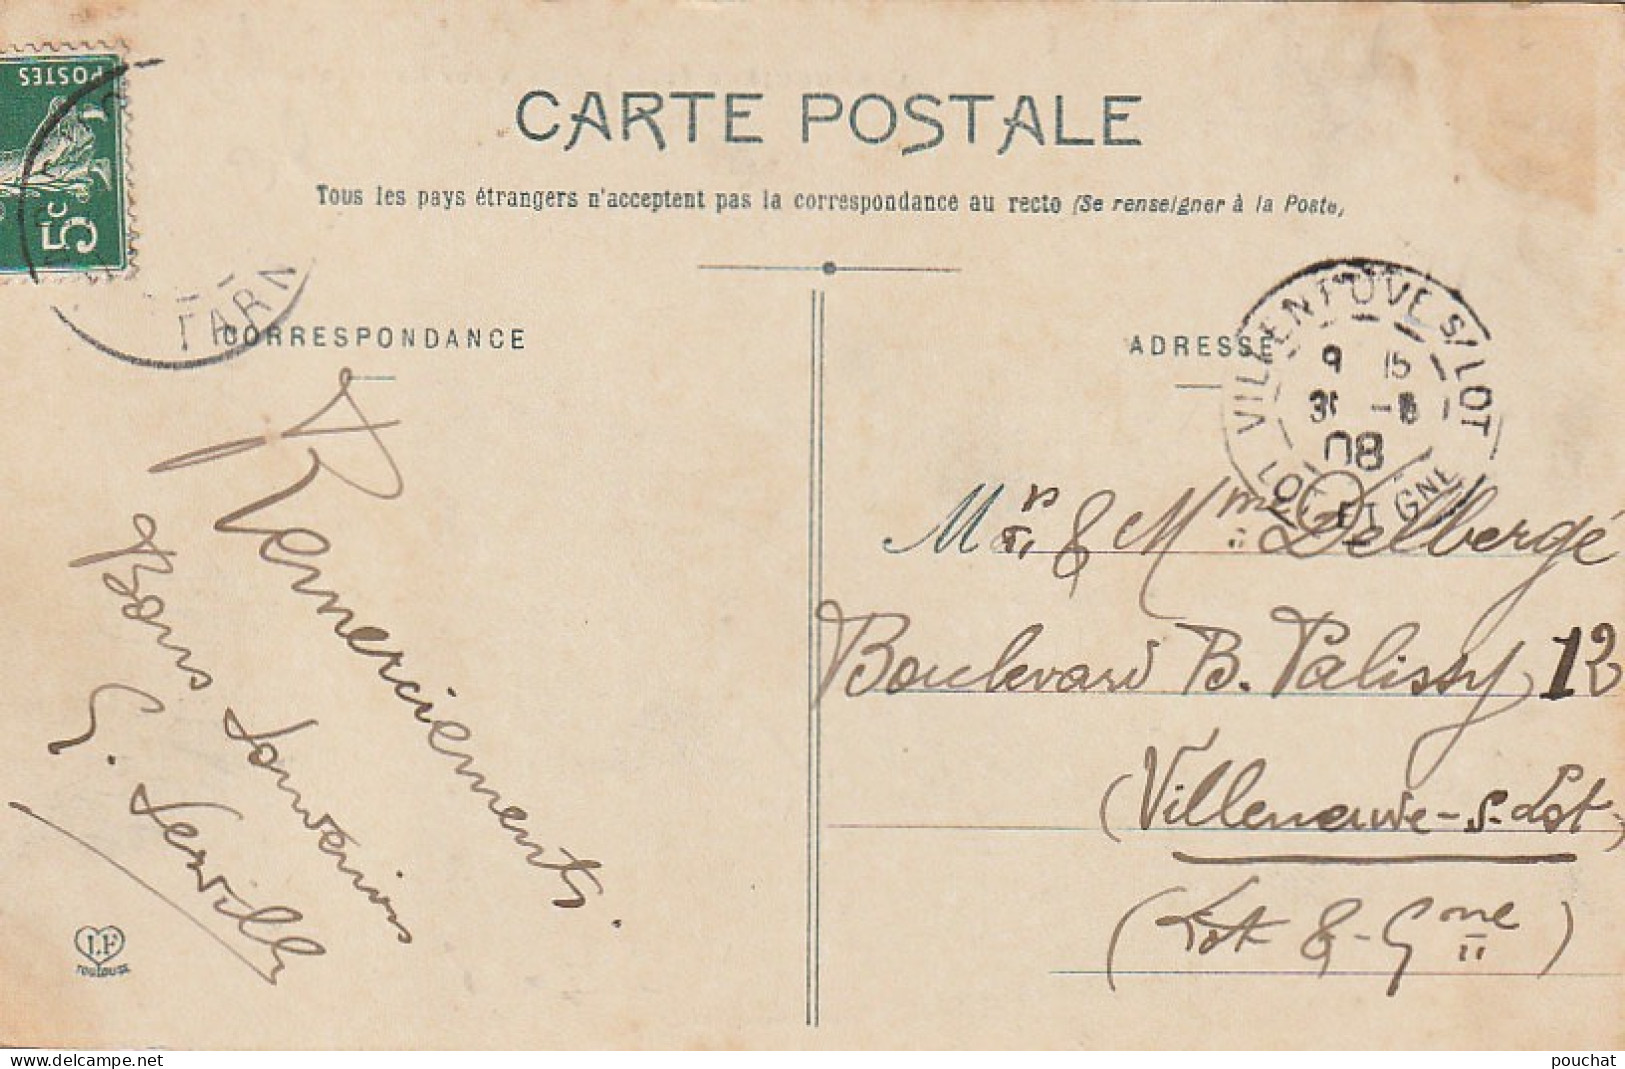 POSTES
5c
CARTE POSTALE
Tous les pays étrangers n'acceptent pas la correspondance au recto (Se renseigner à la Poste)
TARN
CORRESPONDANCE
ADRESSE
VILLENEUVE S/LOT
9 15
08
LOT ET GNE
Remerciements.
Bons Souvenirs
Mr & Mme Delbergé
Boulevard B. Palissy, 12
(Villeneuve-s-Lot-)
(Lot & Gne)
TOULOUSE
delcampe.net
pouchat